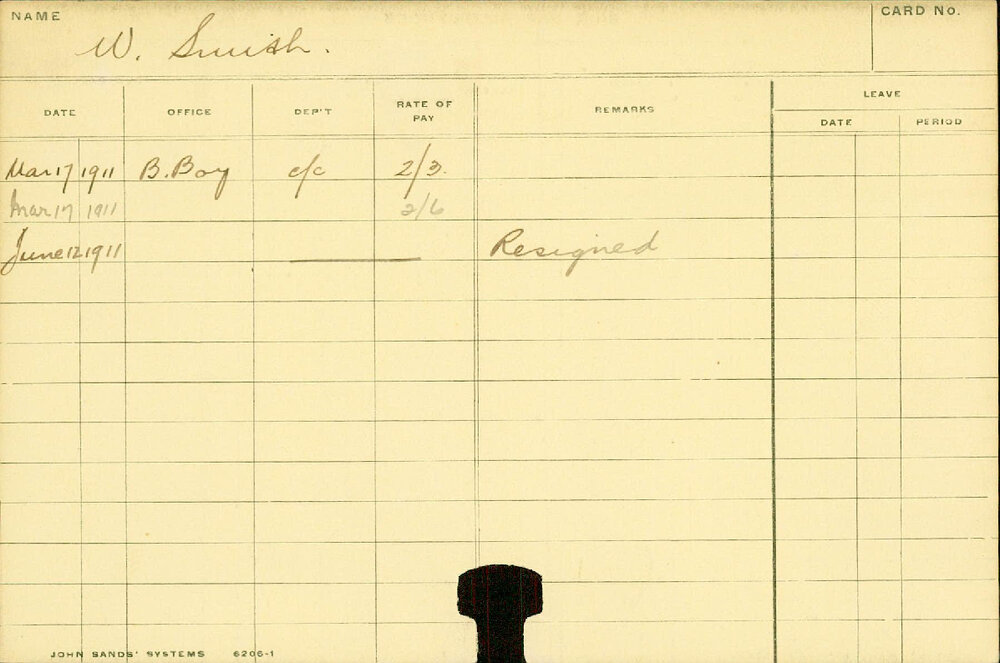 NAME W. Smith. CARD No.
DATE OFFICE DEP'T RATE OF PAY REMARKS LEAVE
DATE PERIOD
Mar 17 1911 B. Boy c/c 2/3.
Mar 17 1911 2/6
June 12 1911 Resigned
JOHN SANDS' SYSTEMS 6206-1